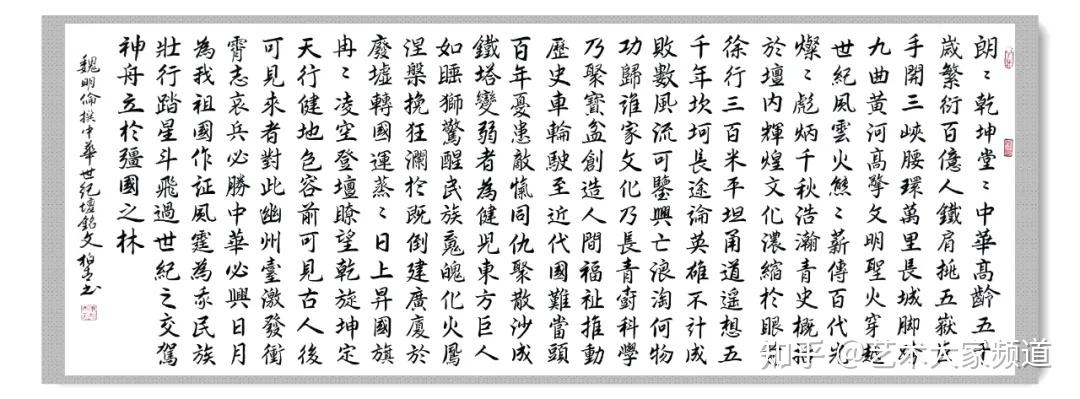 朗〻乾坤堂〻中華高齡五千
歲繁衍百億人鐵肩挑五嶽巨
手開三峽腰環萬里長城脚跨
九曲黃河高擎文明聖火穿越
世紀風雲火熊〻薪傳百代光
燦〻彪炳千秋浩瀚青史概括
於壇內輝煌文化濃縮於眼前
徐行三百米平坦甬道遥想五
千年坎坷長途論英雄不計成
敗數風流可鑒興亡浪淘何物
功歸誰家文化乃長青樹科學
乃聚寶盆創造人間福祉推動
歷史車輪駛至近代國難當頭
百年憂患敵愾同仇聚散沙成
鐵塔變弱者為健兒東方巨人
如睡獅驚醒民族魂魄化火鳳
涅槃挽狂瀾於既倒建廣廈於
廢墟轉國運蒸〻日上昇國旗
冉〻凌空登壇瞭望乾旋坤定
天行健地色容前可見古人後
可見來者對此幽州臺激發衝
霄志哀兵必勝中華必興日月
為我祖國作証風霆為我民族
壯行踏星斗飛過世紀之交駕
神舟立於疆國之林
魏明倫撰中華世紀壇銘文
知乎 @艺术大家频道